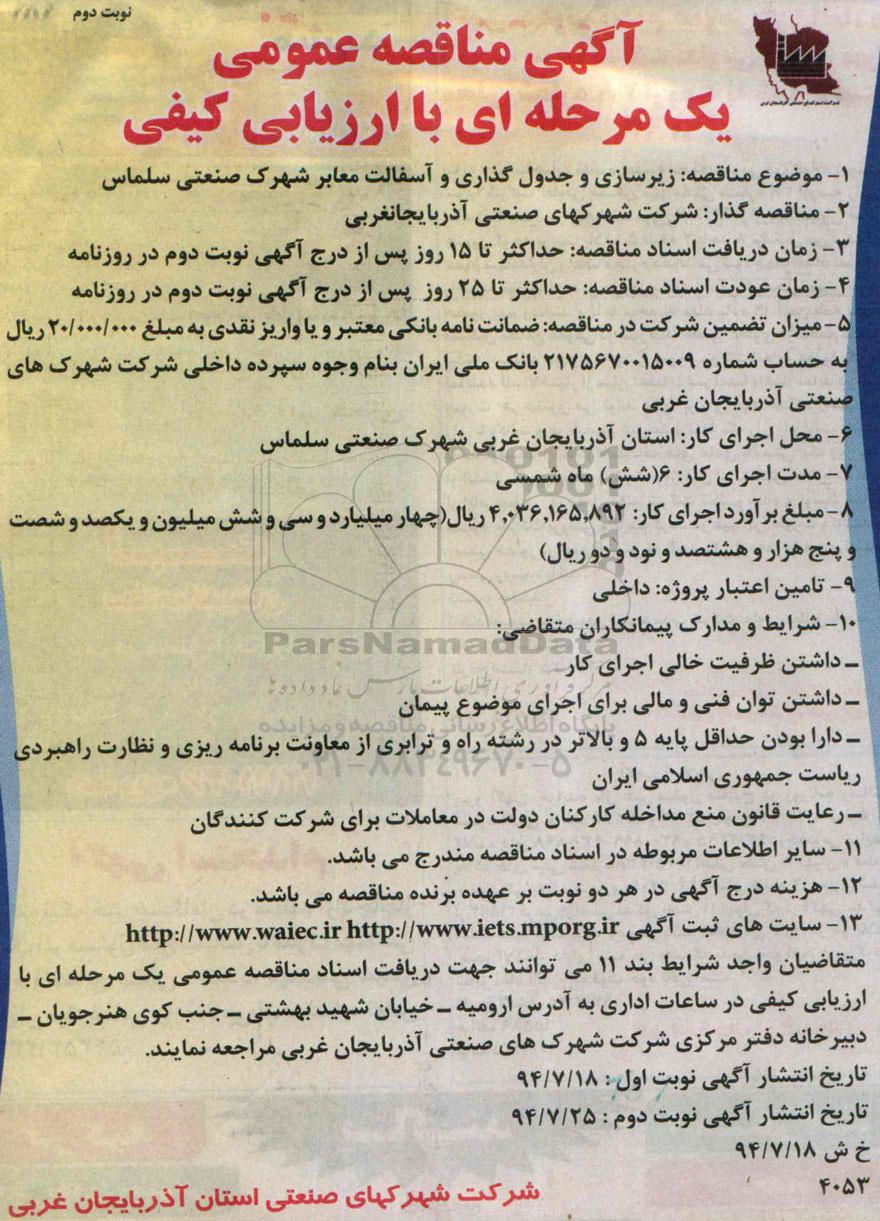 نوبت دوم
آگهی مناقصه عمومی
یک مرحله ای با ارزیابی کیفی
۱- موضوع مناقصه: زیرسازی و جدول گذاری و آسفالت معابر شهرک صنعتی سلماس
۲- مناقصه گذار: شرکت شهرکهای صنعتی آذربایجانغربی
۳- زمان دریافت اسناد مناقصه: حداکثر تا ۱۵ روز پس از درج آگهی نوبت دوم در روزنامه
۴- زمان عودت اسناد مناقصه: حداکثر تا ۲۵ روز پس از درج آگهی نوبت دوم در روزنامه
۵- میزان تضمین شرکت در مناقصه: ضمانت نامه بانکی معتبر و یا واریز نقدی به مبلغ ۲۰/۰۰۰/۰۰۰ ریال
به حساب شماره ۲۱۷۵۶۷۰۰۱۵۰۰۹ بانک ملی ایران بنام وجوه سپرده داخلی شرکت شهرک های
صنعتی آذربایجان غربی
۶- محل اجرای کار: استان آذربایجان غربی شهرک صنعتی سلماس
۷- مدت اجرای کار: ۶(شش) ماه شمسی
۸- مبلغ برآورد اجرای کار: ۴,۰۳۶,۱۶۵,۸۹۲ ریال(چهار میلیارد و سی و شش میلیون و یکصد و شصت
و پنج هزار و هشتصد و نود و دو ریال)
۹- تامین اعتبار پروژه: داخلی
۱۰- شرایط و مدارک پیمانکاران متقاضی:
ParsNamadData
ـ داشتن ظرفیت خالی اجرای کار
ـ داشتن توان فنی و مالی برای اجرای موضوع پیمان
پایگاه اطلاع رسانی مناقصه و مزایده
ـ دارا بودن حداقل پایه ۵ و بالاتر در رشته راه و ترابری از معاونت برنامه ریزی و نظارت راهبردی
۰۲۱-۸۸۳۴۹۶۷۰-۵
ریاست جمهوری اسلامی ایران
ـ رعایت قانون منع مداخله کارکنان دولت در معاملات برای شرکت کنندگان
۱۱- سایر اطلاعات مربوطه در اسناد مناقصه مندرج می باشد.
۱۲- هزینه درج آگهی در هر دو نوبت بر عهده برنده مناقصه می باشد.
۱۳- سایت های ثبت آگهی http://www.waiec.ir http://www.iets.mporg.ir
متقاضیان واجد شرایط بند ۱۱ می توانند جهت دریافت اسناد مناقصه عمومی یک مرحله ای با
ارزیابی کیفی در ساعات اداری به آدرس ارومیه ـ خیابان شهید بهشتی ـ جنب کوی هنرجویان ـ
دبیرخانه دفتر مرکزی شرکت شهرک های صنعتی آذربایجان غربی مراجعه نمایند.
تاریخ انتشار آگهی نوبت اول : ۹۴/۷/۱۸
تاریخ انتشار آگهی نوبت دوم : ۹۴/۷/۲۵
خ ش ۹۴/۷/۱۸
۴۰۵۳
شرکت شهرکهای صنعتی استان آذربایجان غربی